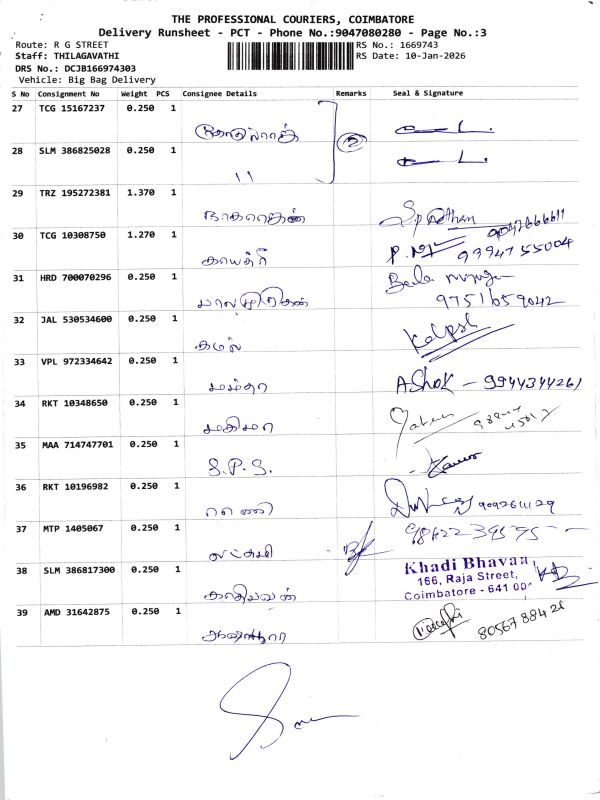 THE PROFESSIONAL COURIERS, COIMBATORE
Delivery Runsheet - PCT - Phone No.:9047080280 - Page No.:3
Route: R G STREET RS No.: 1669743
Staff: THILAGAVATHI RS Date: 10-Jan-2026
DRS No.: DCJB166974303
Vehicle: Big Bag Delivery
S No Consignment No Weight PCS Consignee Details Remarks Seal & Signature
27 TCG 15167237 0.250 1
28 SLM 386825028 0.250 1
②
11
29 TRZ 195272381 1.370 1
நாகராஜன்
30 TCG 10308750 1.270 1
காயத்ரி 9994755004
31 HRD 700070296 0.250 1
பாலமுருகன் Bala murugan
9751659042
32 JAL 530534600 0.250 1
கமல் Kalpesh
33 VPL 972334642 0.250 1
மம்தா AShok - 9944344261
34 RKT 10348650 0.250 1
மகிமா
35 MAA 714747701 0.250 1
S.P.S.
36 RKT 10196982 0.250 1
37 MTP 1405067 0.250 1
லட்சுமி
38 SLM 386817300 0.250 1
கதிரவன்
Khadi Bhavan,
166, Raja Street,
Coimbatore - 641 001
39 AMD 31642875 0.250 1
80567 884 21